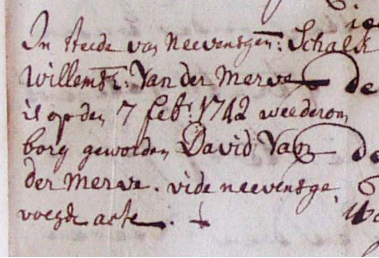 In steede van neevensgen: Schalk
Willemsz: Van der Merve
is op den 7 feb: 1742 weederom
borg geworden David Van
der Merve. vide neevensge
voegde acte.